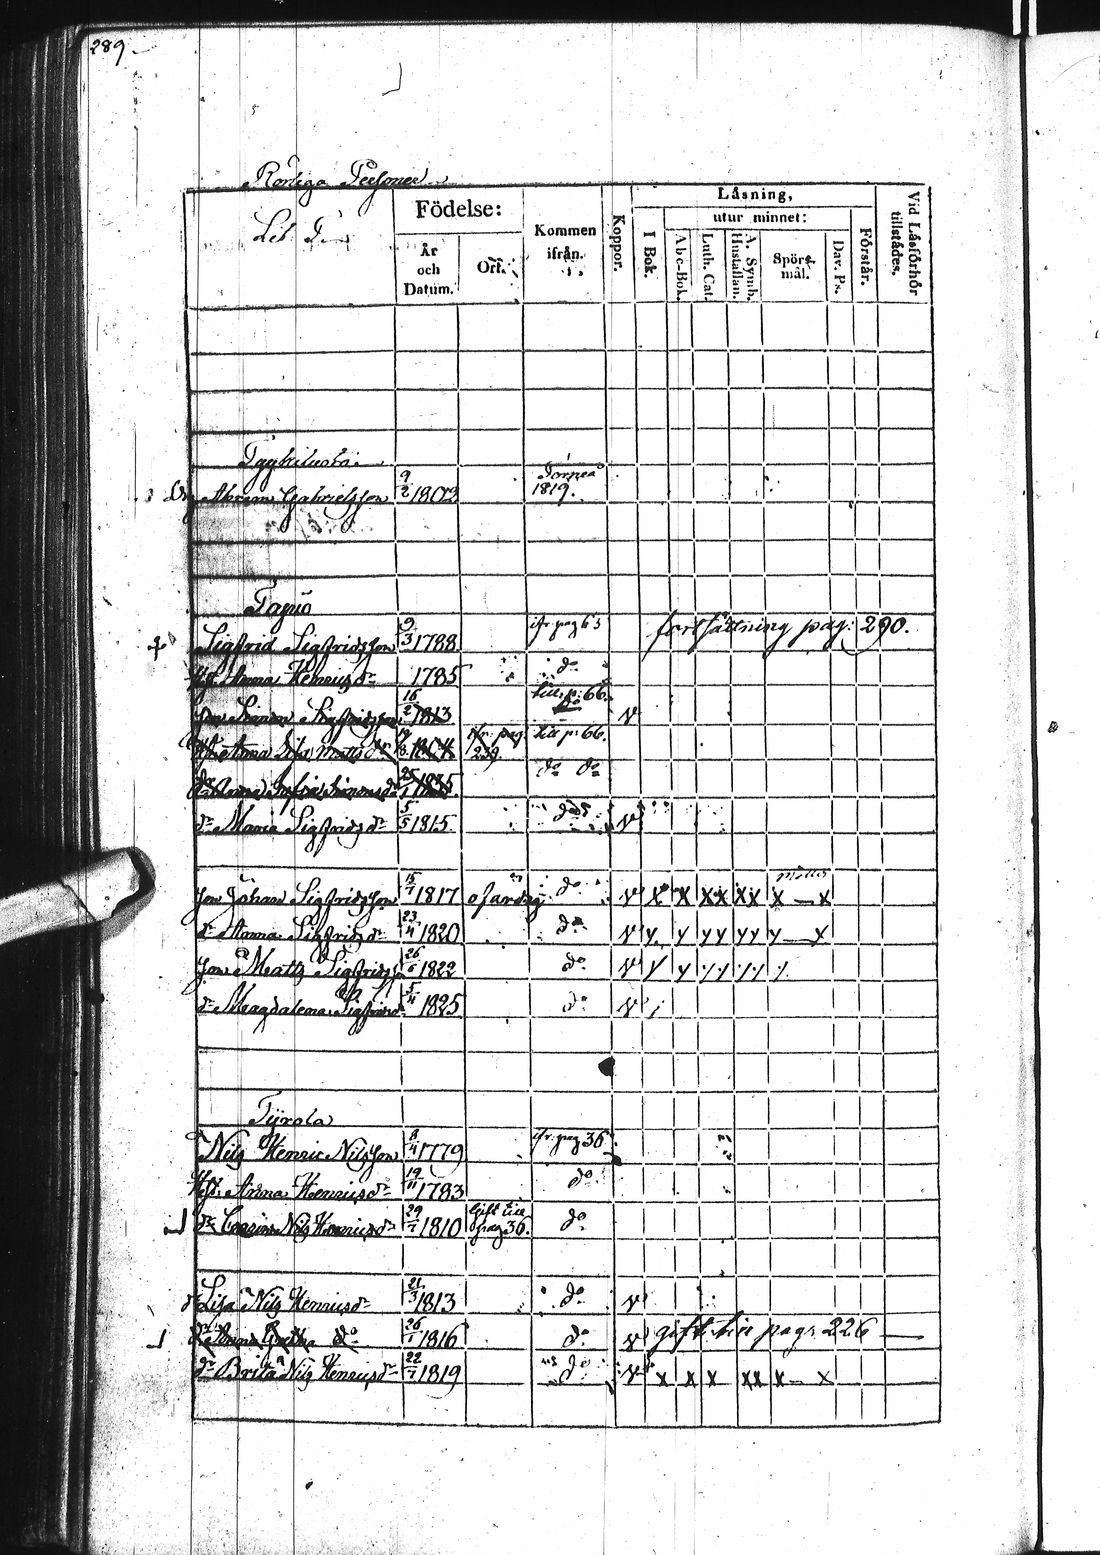 289
Rörliga Personer
Lit T
Födelse:
År och Datum.
Ort.
Kommen ifrån.
Koppor.
Läsning,
I Bok.
utur minnet:
Abc-Bok.
Luth. Cat.
A. Symb. Hustaflan.
Spörsmål.
Dav. Ps.
Förstår.
Vid Läsförhör tillstädes.
Abram Gabrielsson 9/2 1803 Torneå 1819.
Sigfrid Sigfridsson 9/3 1788 ifr. pag 63 fortsättning pag: 290.
Hu Anna Henricsdr 1785 do
Son Simon Sigfridsson 16/2 1813 till p: 66. v
Anna Lisa Mattsdr ifr. pag: 239 till p: 66.
dr Anna Sofia Simonsdr 25/1 1835 do do
dr Maria Sigfridsdr 5/5 1815 do v
Son Johan Sigfridsson 15/7 1817 ofärdig do v x x xx xx x — x
dr Anna Sigfridsdr 23/4 1820 do v y y yy yy y — x
Son Matts Sigfridsson 26/6 1822 do v
dr Magdalena Sigfridsdr 5/4 1825 do v
Tyrola
Nils Henric Nilsson 8/4 1779 ifr. pag 36
Hu Anna Henricsdr 19/11 1783 do
dr Caisa Nils Henricsdr 29/7 1810 Gift till pag 36. do
dr Lisa Nils Henricsdr 21/3 1813 do v
dr Anna Gretha do 26/1 1816 do v gift till pag: 226
dr Brita Nils Henricsdr 22/7 1819 do v x x x xx x — x